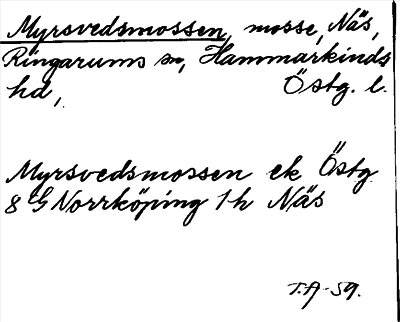 Myrsvedsmossen, mosse, Näs,
Ringarums sn, Hammarkinds
hd, Östg. l.
Myrsvedsmossen ek Östg
8 G Norrköping 1h Näs
T.A-59.